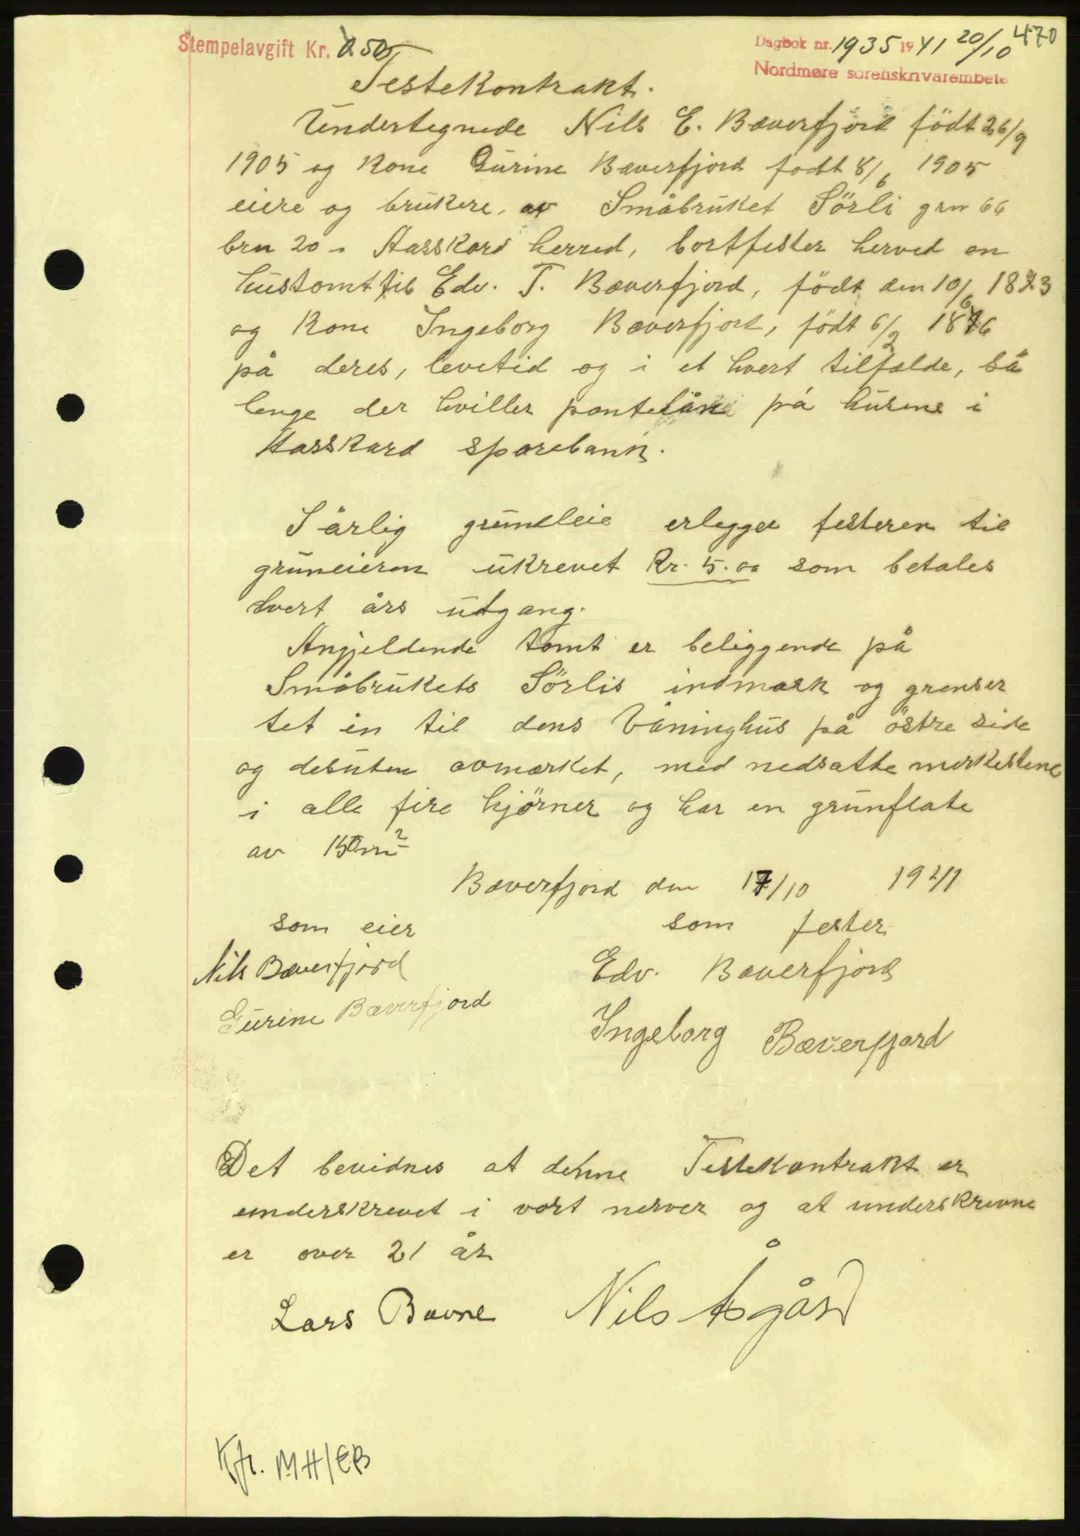 Stempelavgift Kr. 0.50
Dagbok nr. 1935 1941 20/10 470
Nordmøre sorenskriverembete
Festekontrakt.
Undertegnede Nils E. Bæverfjord født 26/9
1905 og Kone Gurine Bæverfjord født 8/6 1905
eiere og brukere av Småbruket Sörli grn 66
brn 20 i Aasskard herred, bortfester herved en
hustomt til Edv. T. Bæverfjord, födt den 10/6 1873
og Kone Ingeborg Bæverfjord, födt 6/2 1876
på deres, levetid og i et hvert tilfælde, så
lenge der hviller pantelån på husene i
Aasskard sparebank.
I årlig grundleie erlegger festeren til
gruneieren ukrevet Kr. 5.00 som betales
hvert års utgang.
Angjeldende tomt er beliggende på
Småbrukets Sörlis indmark og grenser
tet in til dens Våninghus på östre side
og desuten avmærket, med nedsatte merkestene
i alle fire hjörner og har en grunflate
av 150m²
Bæverfjord den 17/10 1941
som eier som fester
Nils Bæverfjord Edv. Bæverfjord
Gurine Bæverfjord Ingeborg Bæverfjord
Det bevidnes at denne Festekontrakt er
underskrevet i vort nerver og at underskrevne
er over 21 år
Lars Bævre Nils Åsgård
Kfr. MH/EB